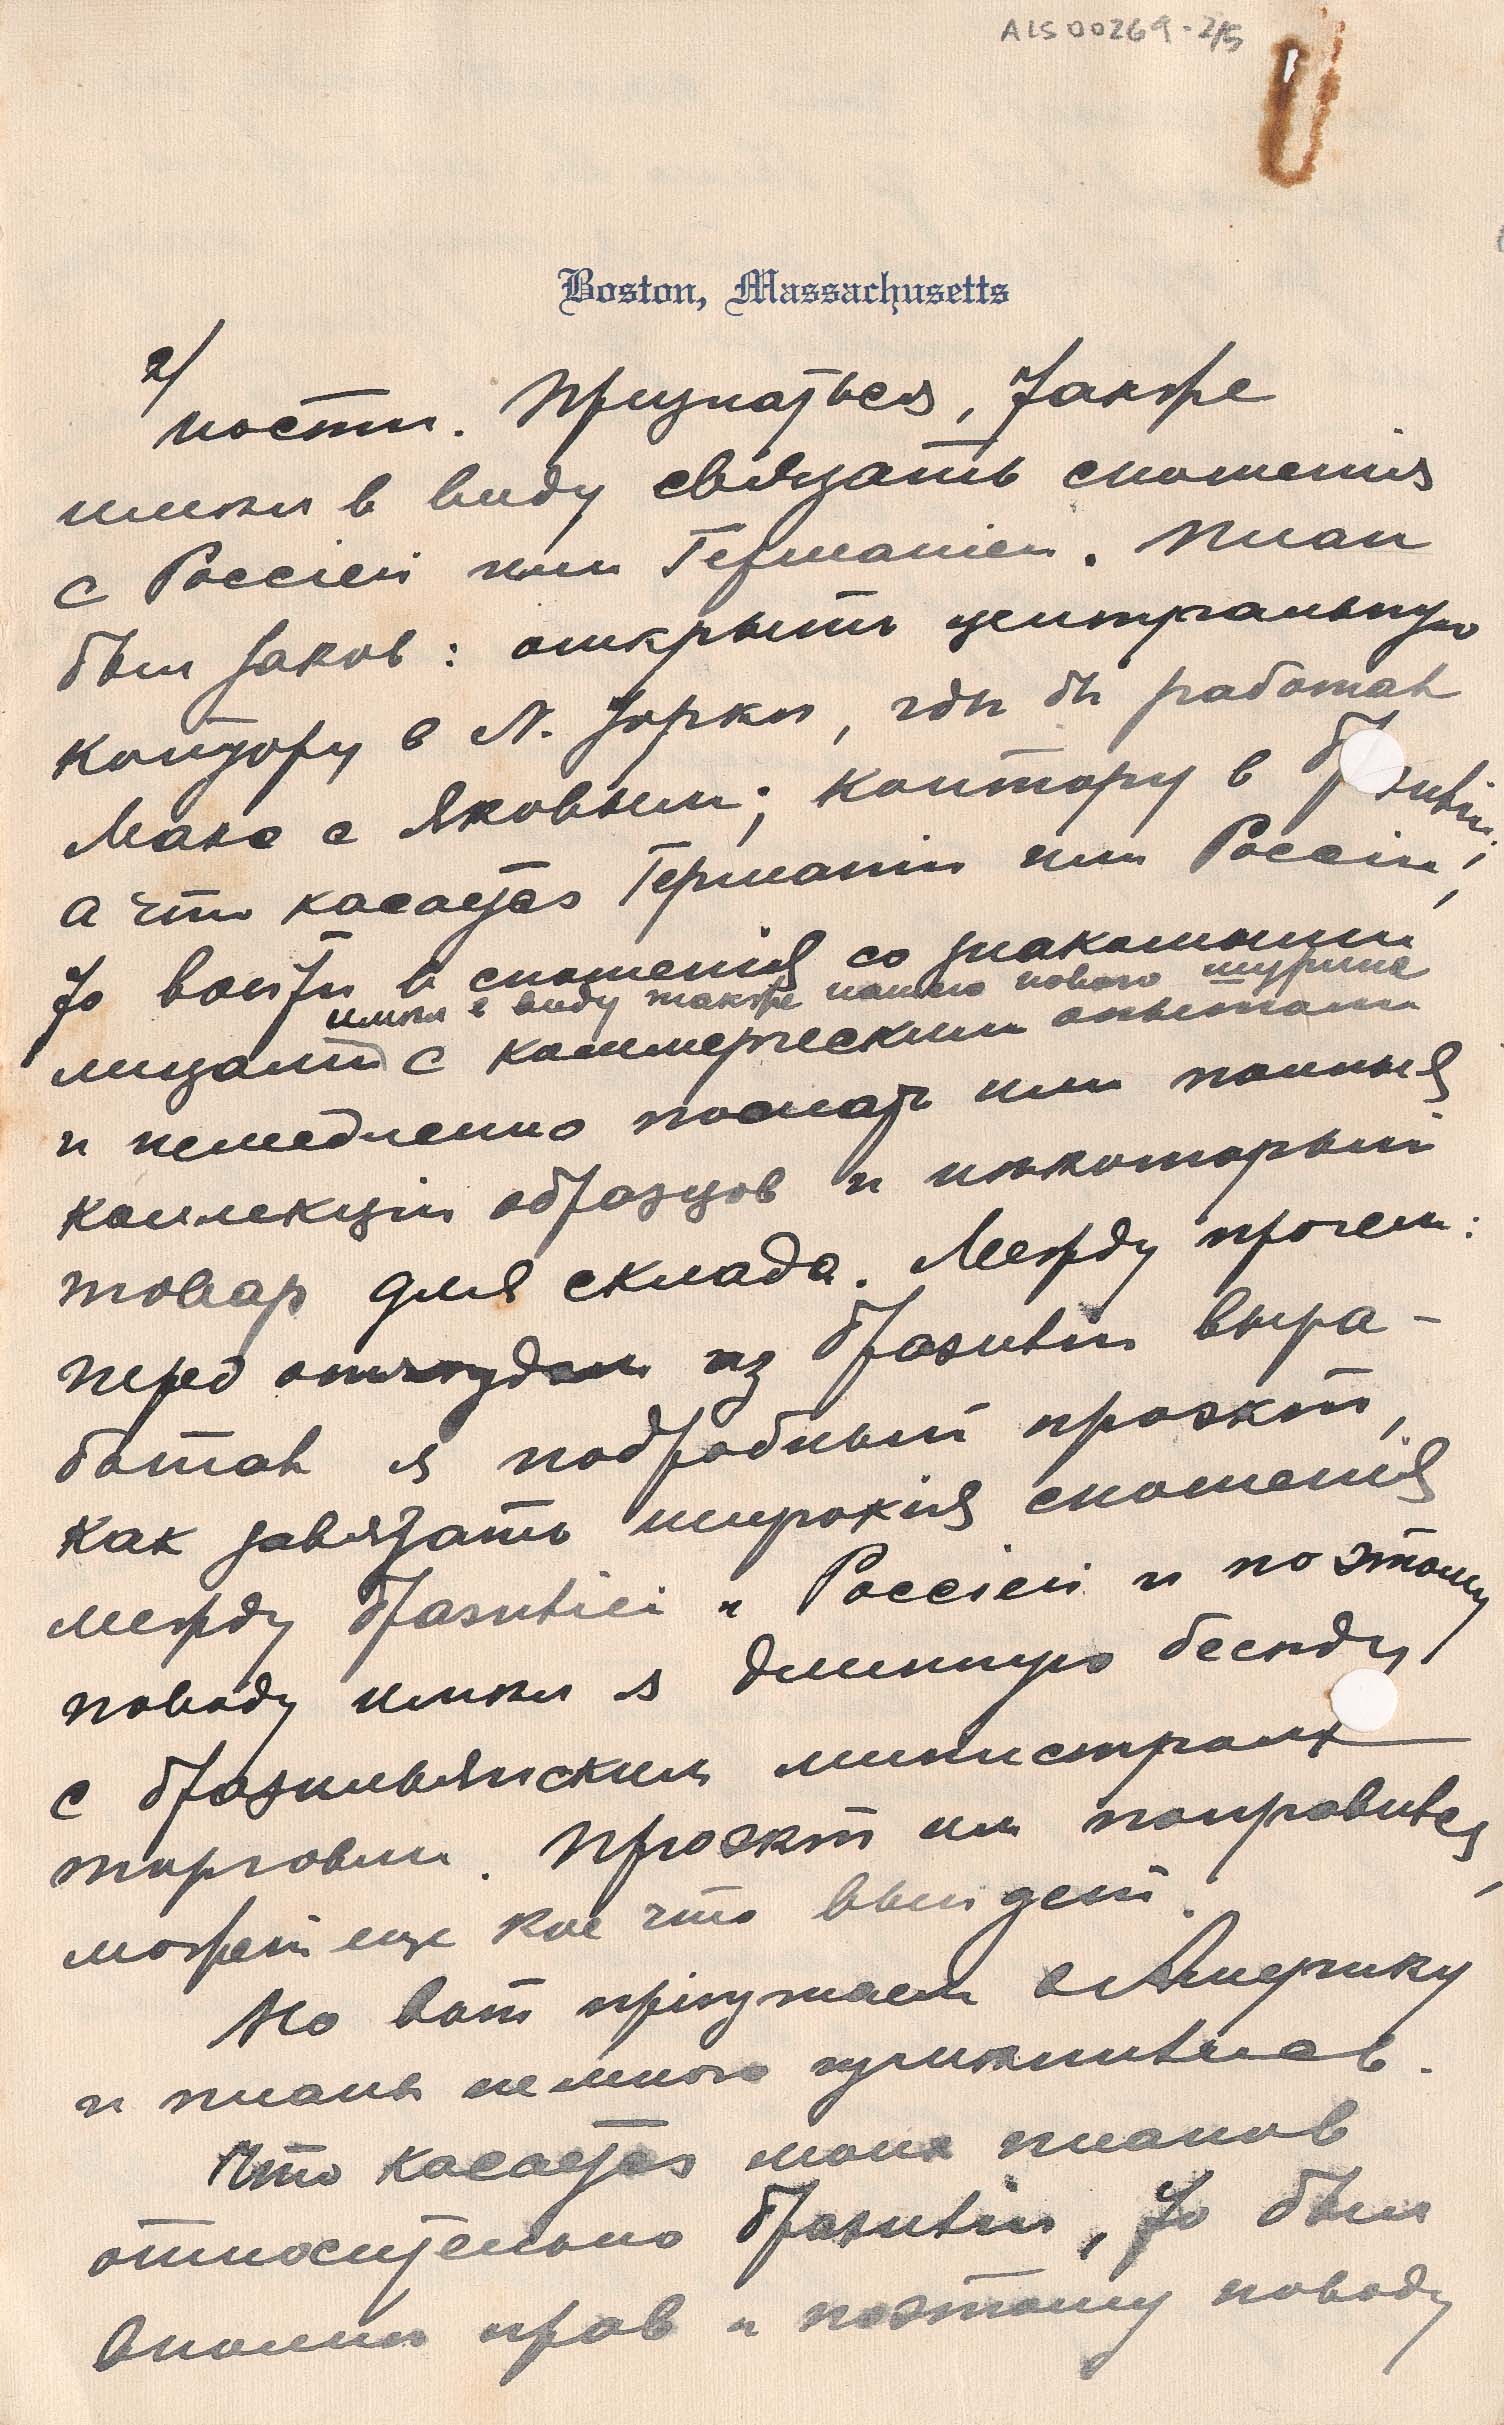 ALS 00269-2/5
Boston, Massachusetts
2/
ности. Признаться, также
имѣл в виду связать сношенія
с Россіей или Германіей. План
был таков: открыть центральную
контору в N. Іоркѣ, гдѣ бы работал
Макс с Яковым; контору в Бразиліи;
а что касается Германіи или Россіи,
то войти в сношенія со знакомыми
имѣя в виду также нашего новаго шурина
лицами с коммерческим опытом
и немедленно послать им полныя
коллекціи образцов и нѣкоторый
товар для склада. Между прочем:
перед отъѣздом из Бразиліи выра-
ботал я подробный проэкт,
как завязать широкія сношенія
между Бразиліей и Россіей и по этому
поводу имѣл я длинную бесѣду
с бразильянским министром
торговли. Проэкт им понравился,
может еще кое что выйдет.
Но вот пріѣзжаем в Америку
и планы немного измѣнились.
Что касается моих планов
относительно Бразиліи, то был
вполнѣ прав и поэтому поводу